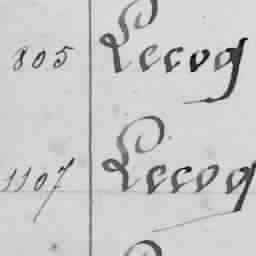 805 Lecoq
1107 Lecoq